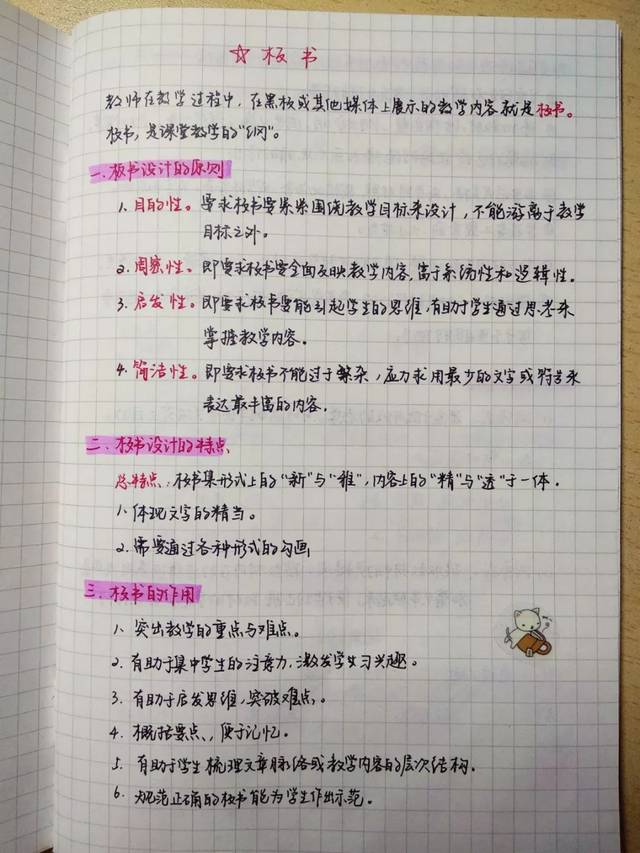 ☆ 板书
教师在教学过程中，在黑板或其他媒体上展示的教学内容就是板书。
板书，是课堂教学的“纲”。
一、板书设计的原则
1. 目的性。要求板书要紧紧围绕教学目标来设计，不能游离于教学
目标之外。
2. 周密性。即要求板书要全面反映教学内容，富于系统性和逻辑性。
3. 启发性。即要求板书要能引起学生的思维，有助于学生通过思考来
掌握教学内容。
4. 简洁性。即要求板书不能过于繁杂，应力求用最少的文字或符号来
表达最丰富的内容。
二、板书设计的特点
总特点：板书集形式上的“新”与“雅”，内容上的“精”与“透”于一体。
1. 体现文字的精当。
2. 需要通过各种形式的勾画
三、板书的作用
1. 突出教学的重点与难点。
2. 有助于集中学生的注意力，激发学生习兴趣。
3. 有助于启发思维，突破难点。
4. 概括要点，便于记忆。
5. 有助于学生梳理文章脉络或教学内容的层次结构。
6. 规范正确的板书能为学生作出示范。